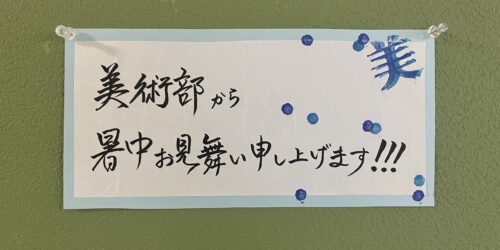 美
美術部から
暑中お見舞い申し上げます!!!